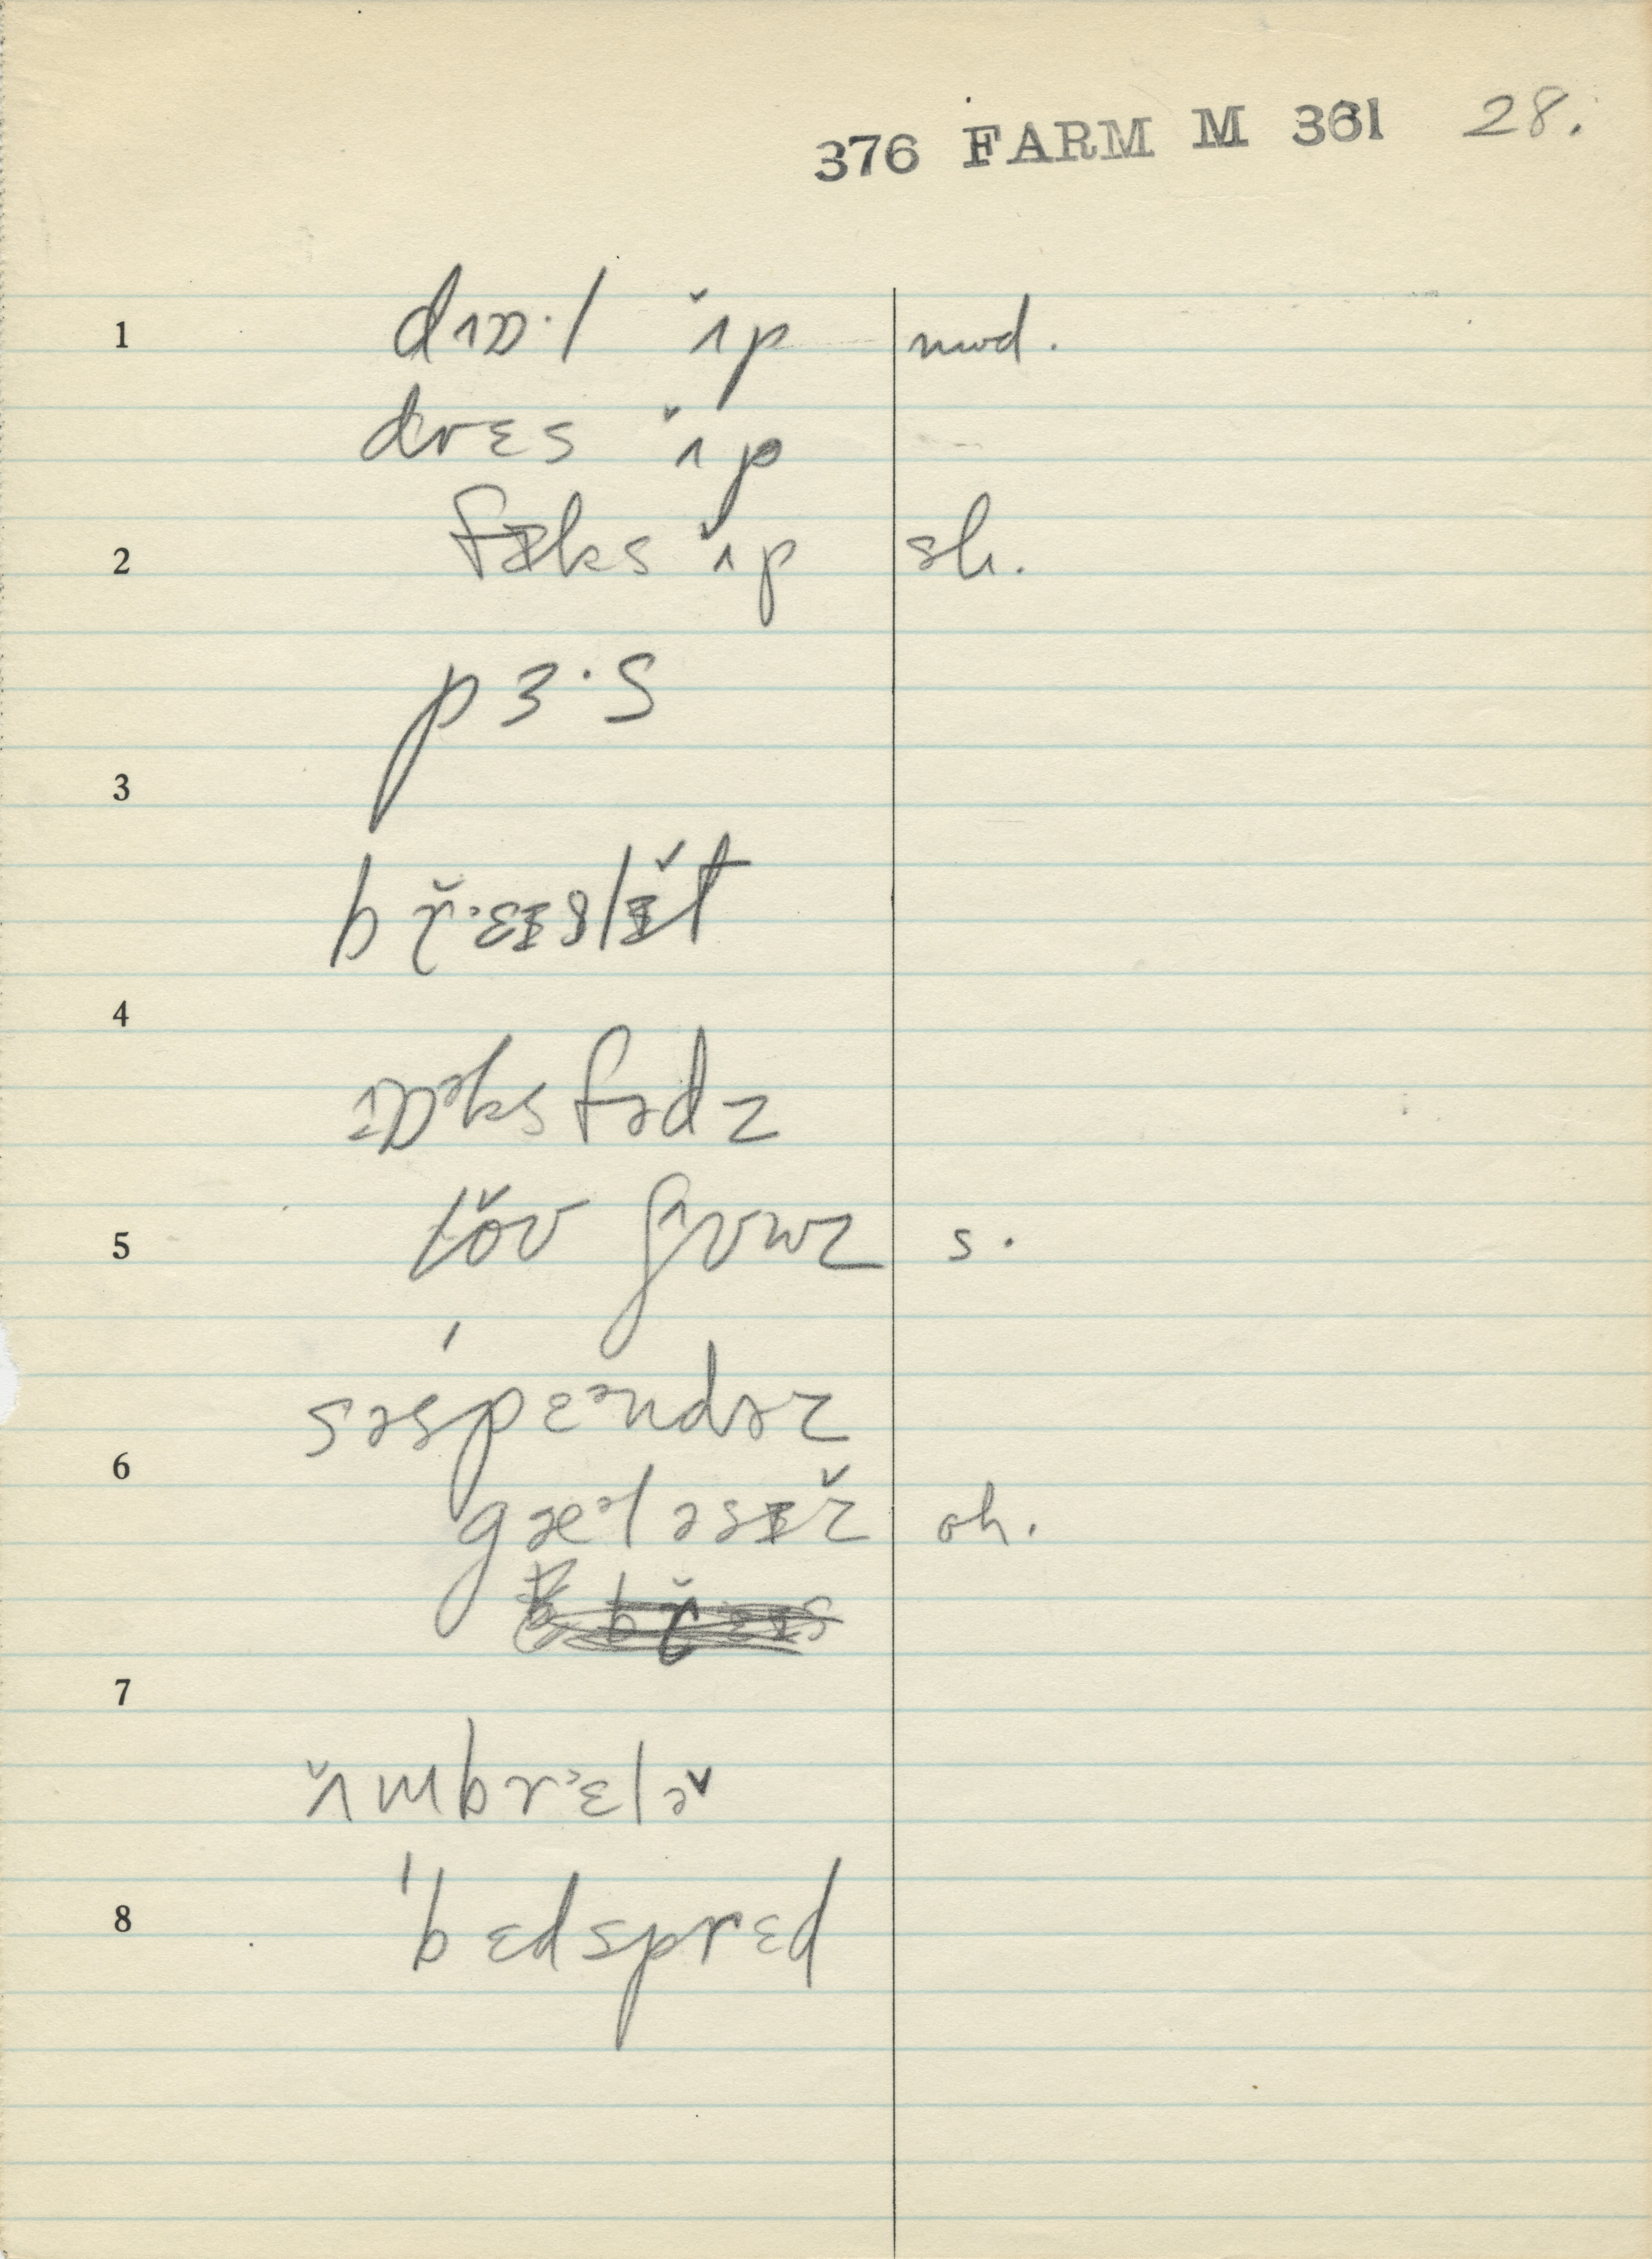 376 FARM M 361 28.
1 dɒɒ·l ʌ̌p mod.
drɛs ʌ̌p
2 fɪks ʌ̌p sh.
pɜ·s
3
br̆·ɛɪslɪ̆t
4
ɒᵊks fədz
5 lɔ̌v ʃʌɒwz s.
səspɛᵊndəz
6
gæᵊləsɪ̆z oh.
7
ʌ̌mbrᵊɛlə̌
8 'bɛdsprɛd